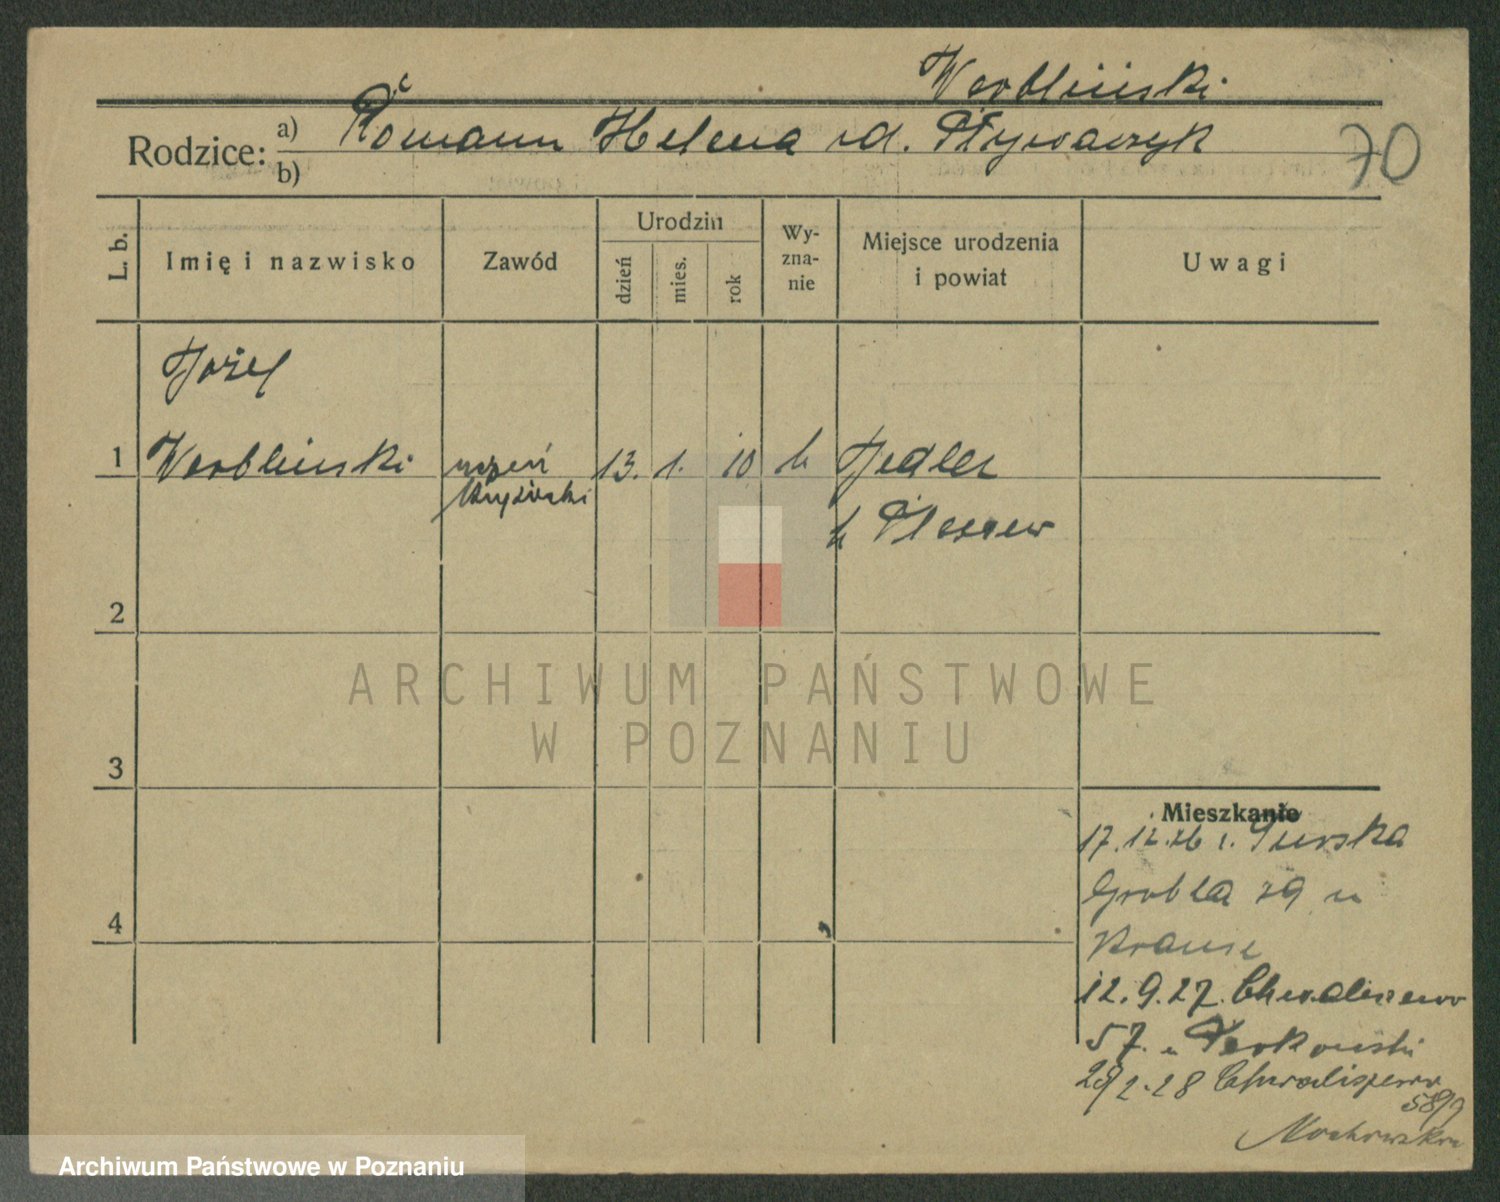 Werbliński
Rodzice: a) Roman Helena zd. Pływaczyk
b)
70
L. b.
Imię i nazwisko
Zawód
Urodzin
dzień
mies.
rok
Wy-
zna-
nie
Miejsce urodzenia
i powiat
Uwagi
Józef
1 Werbliński uczeń 13. 1. 10 k Jedlec
fryzjerski
p Pleszew
2
ARCHIWUM PAŃSTWOWE
W POZNANIU
3
Mieszkanie
17.12.26 r. Górska
Grobla 29 u
4
Krause
12.9.27. Chwaliszewo
57. u
28/2.28 Chwaliszewo
58/9
Archiwum Państwowe w Poznaniu